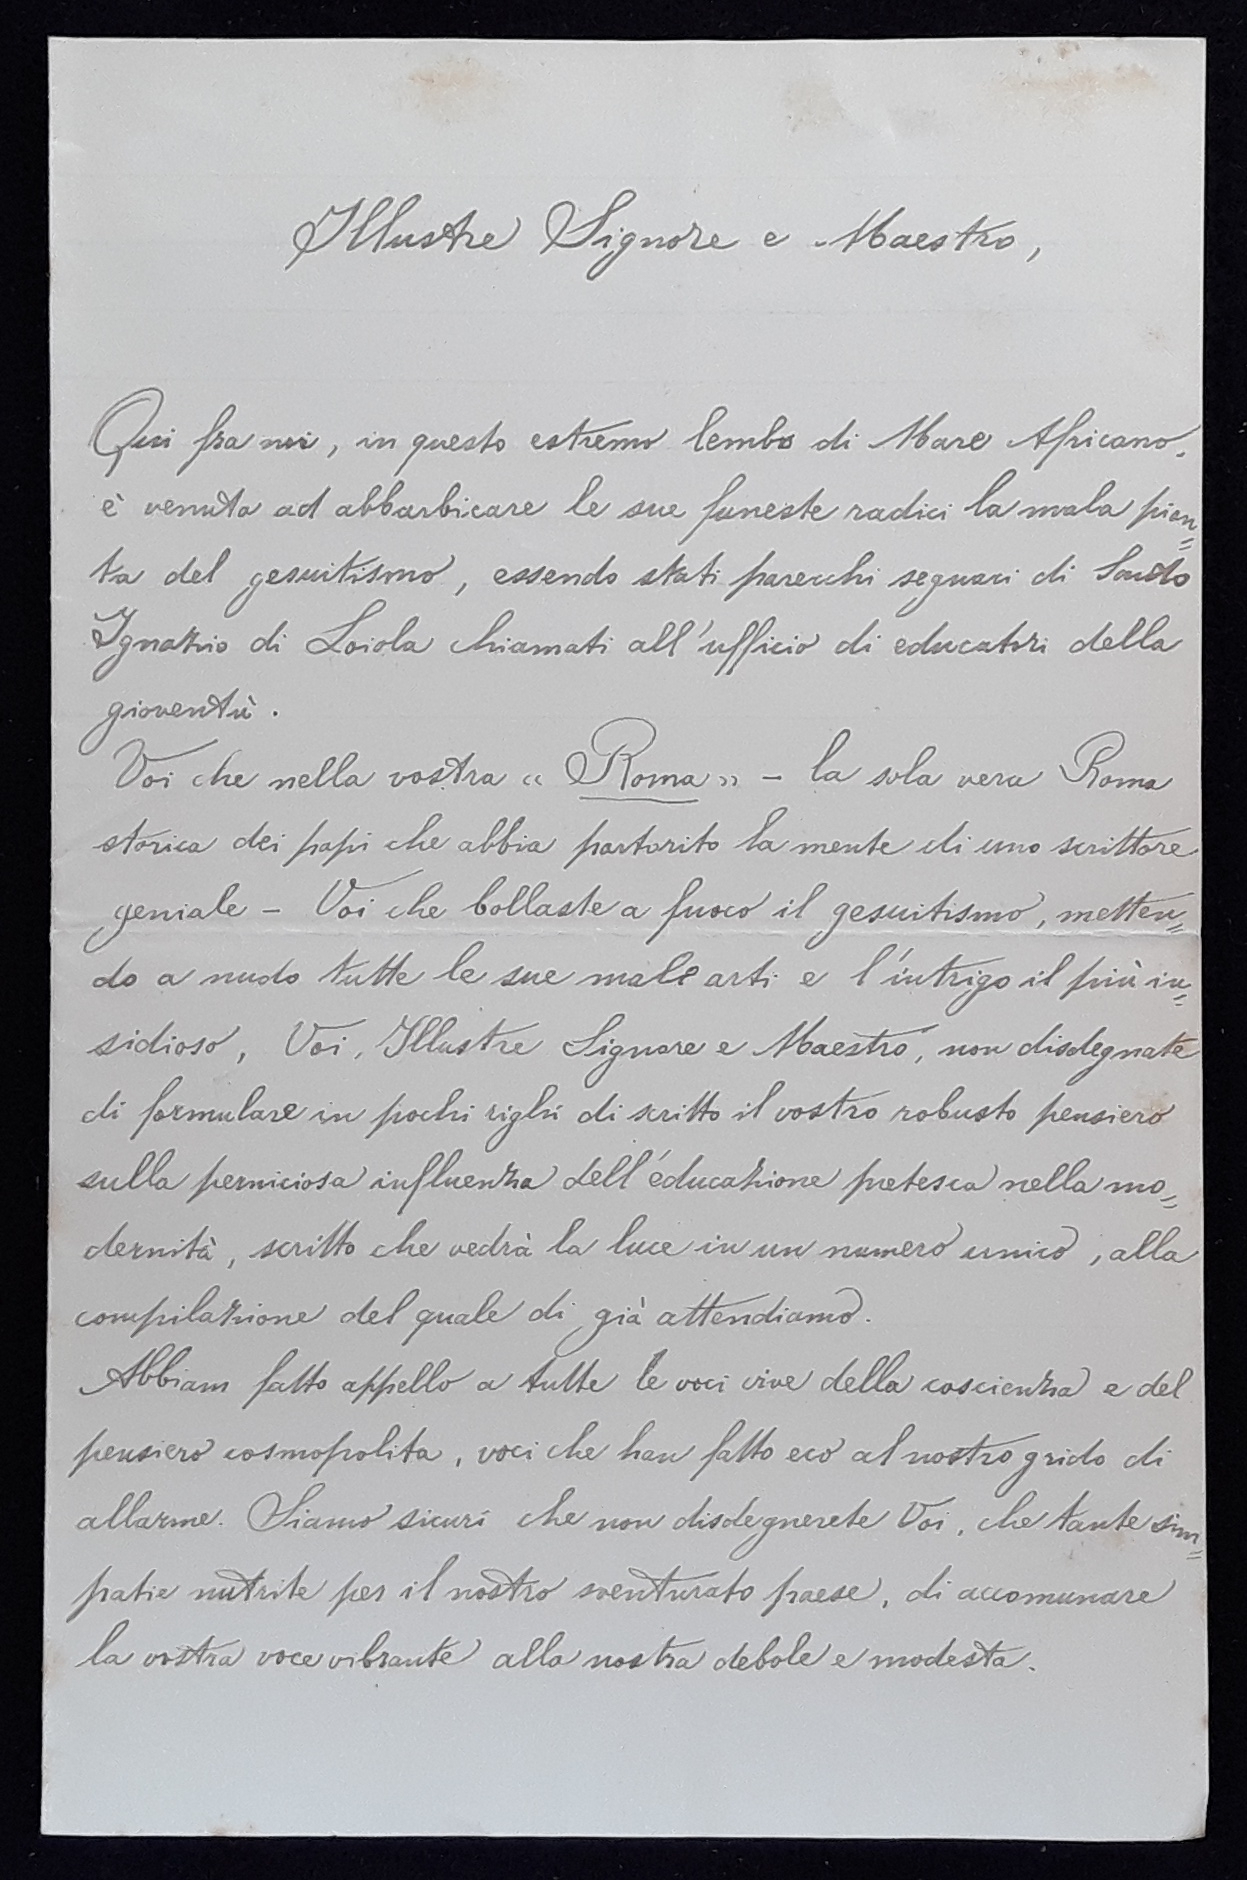 Illustre Signore e Maestro,
Qui fra noi, in questo estremo lembo di Mare Africano,
è venuta ad abbarbicare le sue funeste radici la mala pian=
ta del gesuitismo, essendo stati parecchi seguaci di Santo
Ignazio di Loiola chiamati all'ufficio di educatori della
gioventù.
Voi che nella vostra « Roma » – la sola vera Roma
storica dei papi che abbia partorito la mente di uno scrittore
geniale – Voi che bollaste a fuoco il gesuitismo, metten=
do a nudo tutte le sue male arti e l'intrigo il più in=
sidioso, Voi, Illustre Signore e Maestro, non disdegnate
di formulare in pochi righi di scritto il vostro robusto pensiero
sulla perniciosa influenza dell'educazione pretesca nella mo=
dernità, scritto che vedrà la luce in un numero unico, alla
compilazione del quale di già attendiamo.
Abbiam fatto appello a tutte le voci vive della coscienza e del
pensiero cosmopolita, voci che han fatto eco al nostro grido di
allarme. Siamo sicuri che non disdegnerete Voi, che tante sim=
patie nutrite per il nostro sventurato paese, di accomunare
la vostra voce vibrante alla nostra debole e modesta.